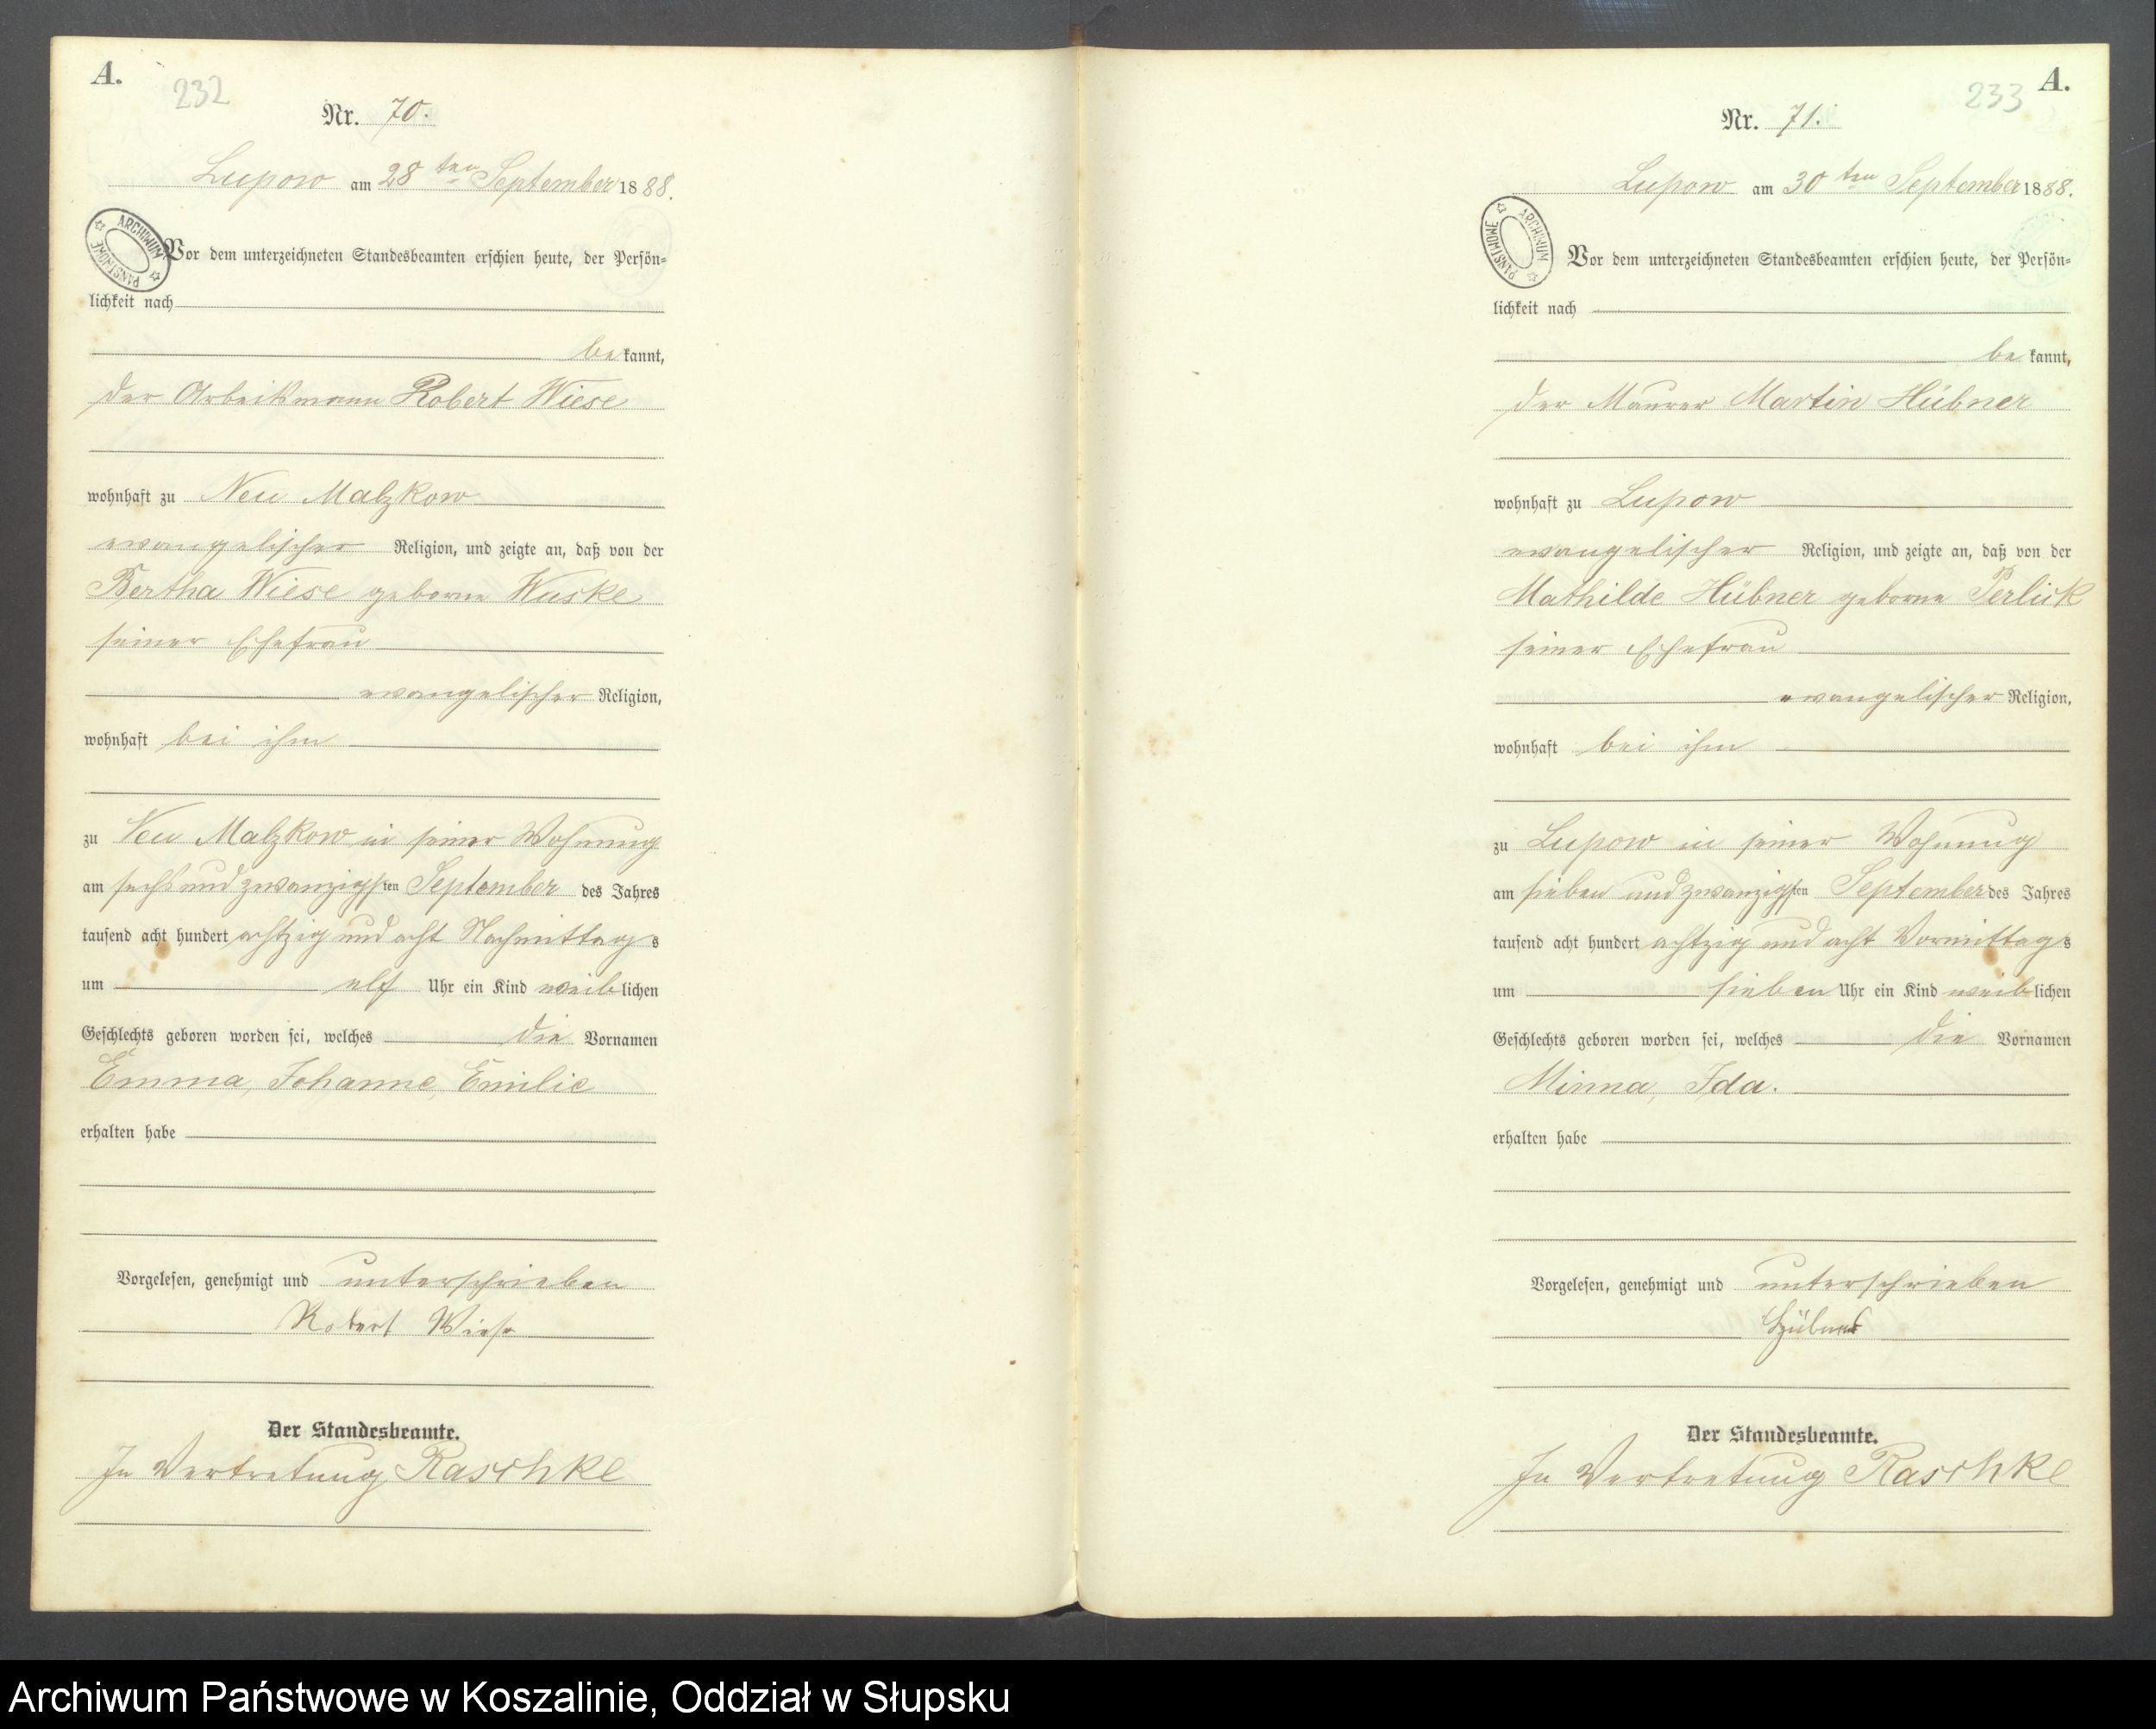 A.
232
Nr. 70.
Lupow am 28 ten September 1888.
ARCHIWUM PAŃSTWOWE
Vor dem unterzeichneten Standesbeamten erschien heute, der Persön-
lichkeit nach
bekannt,
der Arbeitsmann Robert Wiese
wohnhaft zu Neu Malzkow
evangelischer Religion, und zeigte an, daß von der
Bertha Wiese geborne Wuske
seiner Ehefrau
evangelischer Religion,
wohnhaft bei ihm
zu Neu Malzkow in seiner Wohnung
am sechs und zwanzigsten September des Jahres
tausend acht hundert achtzig und acht Nachmittags
um elf Uhr ein Kind weiblichen
Geschlechts geboren worden sei, welches die Vornamen
Emma, Johanne, Emilie
erhalten habe
Vorgelesen, genehmigt und unterschrieben
Robert Wiese
Der Standesbeamte.
In Vertretung Raschke
A.
233
Nr. 71.
Lupow am 30 ten September 1888.
ARCHIWUM PAŃSTWOWE
Vor dem unterzeichneten Standesbeamten erschien heute, der Persön-
lichkeit nach
bekannt,
der Maurer Martin Hübner
wohnhaft zu Lupow
evangelischer Religion, und zeigte an, daß von der
Mathilde Hübner geborne Perlick
seiner Ehefrau
evangelischer Religion,
wohnhaft bei ihm
zu Lupow in seiner Wohnung
am sieben und zwanzigsten September des Jahres
tausend acht hundert achtzig und acht Vormittags
um sieben Uhr ein Kind weiblichen
Geschlechts geboren worden sei, welches die Vornamen
Minna, Ida.
erhalten habe
Vorgelesen, genehmigt und unterschrieben
Hübner
Der Standesbeamte.
In Vertretung Raschke
Archiwum Państwowe w Koszalinie, Oddział w Słupsku